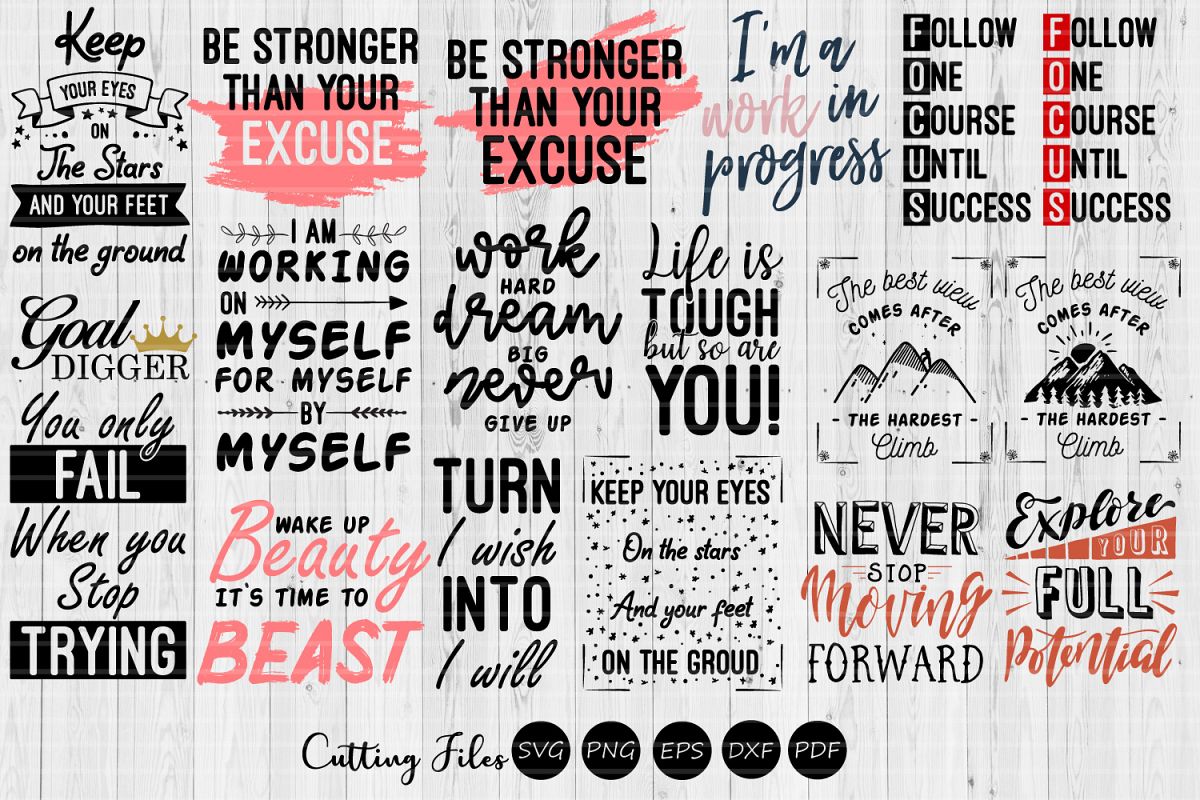 Keep
YOUR EYES
ON
The Stars
AND YOUR FEET
on the ground
BE STRONGER
THAN YOUR
EXCUSE
BE STRONGER
THAN YOUR
EXCUSE
I'm a
work in
progress
FOLLOW
ONE
COURSE
UNTIL
SUCCESS
FOLLOW
ONE
COURSE
UNTIL
SUCCESS
Goal
DIGGER
I AM
WORKING
ON
MYSELF
FOR MYSELF
BY
MYSELF
work
HARD
dream
BIG
never
GIVE UP
Life is
TOUGH
but so are
YOU!
The best view
COMES AFTER
- THE HARDEST -
Climb
The best view
COMES AFTER
- THE HARDEST -
Climb
You only
FAIL
When you
Stop
TRYING
WAKE UP
Beauty
IT'S TIME TO
BEAST
TURN
I wish
INTO
I will
KEEP YOUR EYES
On the stars
And your feet
ON THE GROUD
NEVER
STOP
Moving
FORWARD
Explore
YOUR
FULL
Potential
Cutting Files SVG PNG EPS DXF PDF